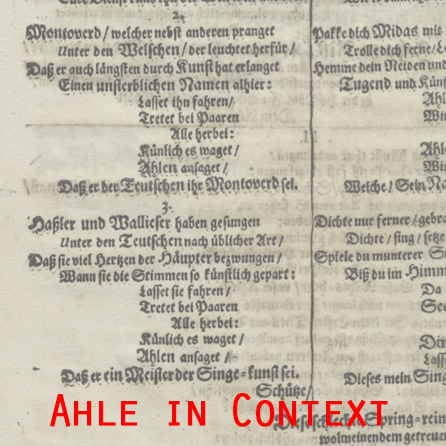 2.
Montoverd / welcher nebst anderen pranget
Unter den Welschen / der leuchtet herfür /
Daß er auch längsten durch Kunst hat erlanget
Einen unsterblichen Namen alhier:
Lasset ihn fahren/
Tretet bei Paaren
Alle herbei:
Künlich es waget /
Ahlen ansaget /
Daß er der Teutschen ihr Montoverd sei.
3.
Haßler und Walliser haben gesungen
Unter den Teutschen nach üblicher Art /
Daß sie viel Hertzen der Häupter bezwungen /
Wann sie die Stimmen so künstlich gepart:
Lasset sie fahren /
Tretet bei Paaren
Alle herbei:
Künlich es waget /
Ahlen ansaget /
Daß er ein Meister der Singe-kunst sei.
Schütze /
Pakke dich Midas mit
Trolle dich ferne /
Hemme dein Neiden und
Tugend und
Ahl
Wi
Ahl
Wi
Welche / Sein
Dichte nur ferner /
Dichte / sing / setze
Spiele du munterer
Biß du im
Da
Dieses mein
Spring-rei
wolmeinendem getreue
AHLE IN CONTEXT